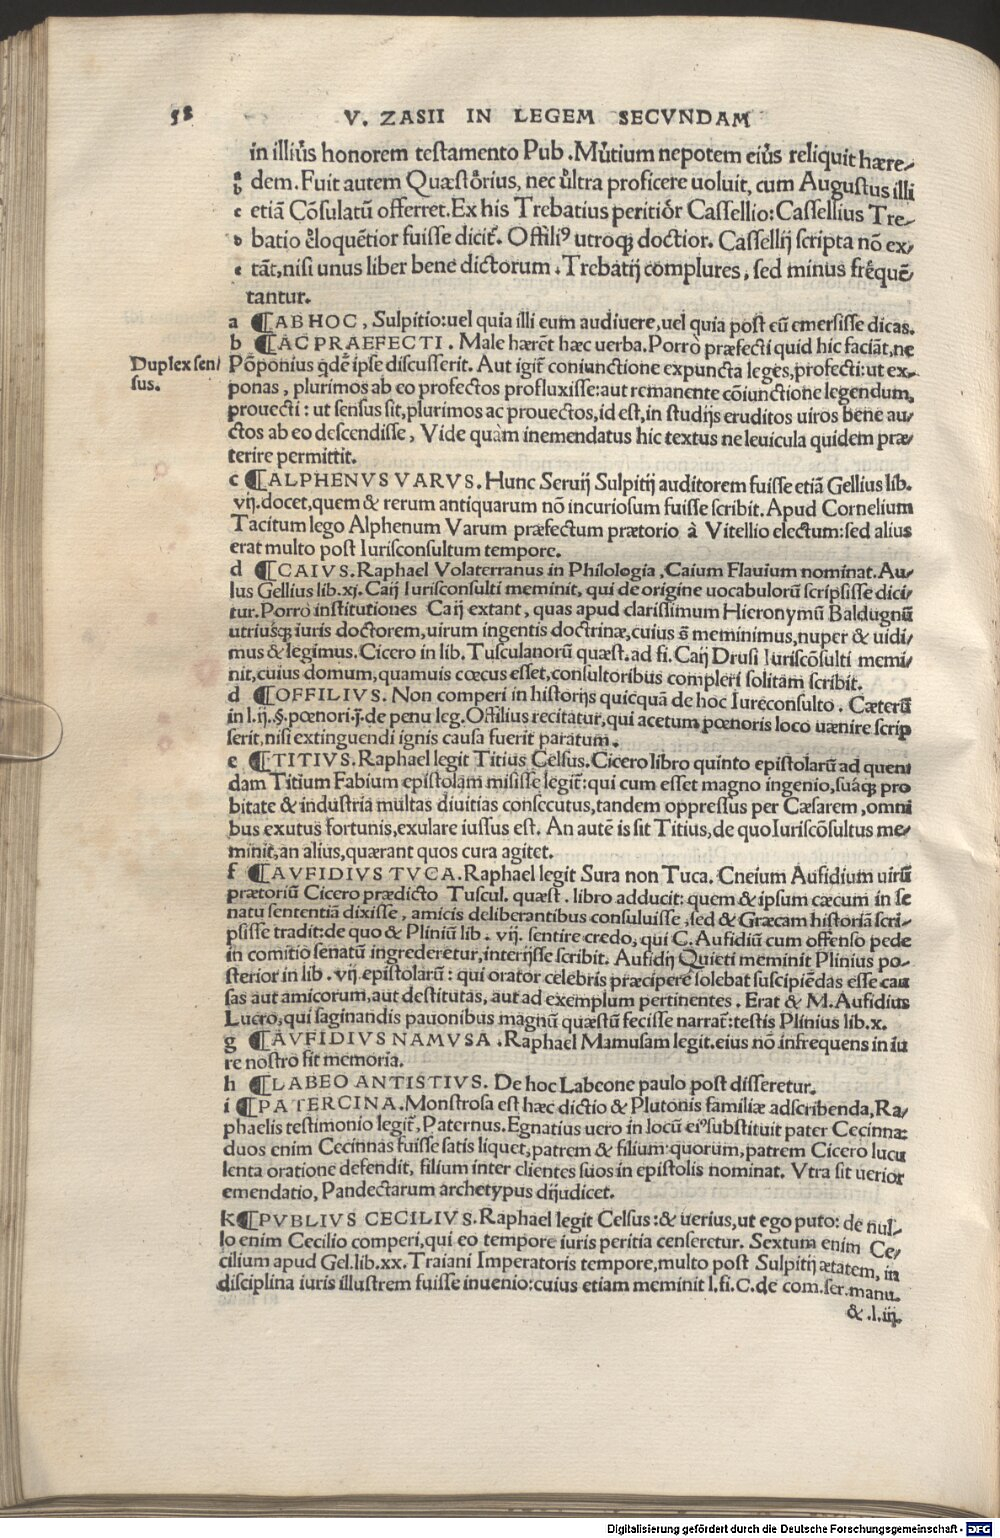 58 V. ZASII IN LEGEM SECVNDAM
in illius honorem testamento Pub. Mutium nepotem eius reliquit hære-
a b dem. Fuit autem Quæstorius, nec ultra proficere uoluit, cum Augustus illi
c etiã Cõsulatũ offerret. Ex his Trebatius peritior Cassellio: Cassellius Tre-
d batio eloquẽtior fuisse dicit᷑. Offiliꝰ utroqꝫ doctior. Cassellij scripta nõ ex-
e tãt, nisi unus liber bene dictorum. Trebatij complures, sed minus frequẽ
tantur.
a ¶AB HOC, Sulpitio: uel quia illi eum audiuere, uel quia post eũ emersisse dicas.
b ¶AC PRAEFECTI. Male hærẽt hæc uerba. Porrò præfecti quid hic faciãt, ne
Duplex sen-
sus.
Põponius qdẽ ipse discusserit. Aut igit᷑ coniunctione expuncta leges, profecti: ut ex-
ponas, plurimos ab eo profectos profluxisse: aut remanente cõiunctione legendum,
prouecti: ut sensus sit, plurimos ac prouectos, id est, in studijs eruditos uiros bene au-
ctos ab eo descendisse, Vide quàm inemendatus hic textus ne leuicula quidem præ-
terire permittit.
c ¶ALPHENVS VARVS. Hunc Seruij Sulpitij auditorem fuisse etiã Gellius lib.
vij. docet, quem & rerum antiquarum nõ incuriosum fuisse scribit. Apud Cornelium
Tacitum lego Alphenum Varum præfectum prætorio à Vitellio electum: sed alius
erat multo post Iurisconsultum tempore.
d ¶CAIVS. Raphael Volaterranus in Philologia, Caium Flauium nominat. Au-
lus Gellius lib. xj. Caij Iurisconsulti meminit, qui de origine uocabulorũ scripsisse dici-
tur. Porrò institutiones Caij extant, quas apud clarissimum Hieronymũ Baldugnũ
utriusqꝫ iuris doctorem, uirum ingentis doctrinæ, cuius õ meminimus, nuper & uidi-
mus & legimus. Cicero in lib. Tusculanorũ quæst. ad fi. Caij Drusi Iuriscõsulti memi-
nit, cuius domum, quamuis cœcus esset, consultoribus compleri solitam scribit.
d ¶OFFILIVS. Non comperi in historijs quicquã de hoc Iureconsulto. Cæterũ
in l. ij. §. pœnori. j. de penu leg. Offilius recitatur, qui acetum pœnoris loco uænire scrip
serit, nisi extinguendi ignis causa fuerit paratum.
e ¶TITIVS. Raphael legit Titius Celsus. Cicero libro quinto epistolarũ ad quen
dam Titium Fabium epistolam misisse legit᷑: qui cum esset magno ingenio, suáqꝫ pro
bitate & industria multas diuitias consecutus, tandem oppressus per Cæsarem, omni
bus exutus fortunis, exulare iussus est. An autẽ is sit Titius, de quo Iuriscõsultus me-
minit, an alius, quærant quos cura agitet.
f ¶AVFIDIVS TVCA. Raphael legit Sura non Tuca. Cneium Aufidium uirũ
prætoriũ Cicero prædicto Tuscul. quæst. libro adducit: quem & ipsum cæcum in se
natu sententiã dixisse, amicis deliberantibus consuluisse, sed & Græcam historiã scri-
psisse tradit: de quo & Pliniũ lib. vij. sentire credo, qui C. Aufidiũ cum offenso pede
in comitio senatũ ingrederetur, interijsse scribit. Aufidij Quieti meminit Plinius po-
sterior in lib. vij. epistolarũ: qui orator celebris præcipere solebat suscipiẽdas esse cau
sas aut amicorum, aut destitutas, aut ad exemplum pertinentes. Erat & M. Aufidius
Lucro, qui saginandis pauonibus magnũ quæstũ fecisse narrat᷑: testis Plinius lib. x.
g ¶AVFIDIVS NAMVSA. Raphael Mamusam legit. eius nõ infrequens in iu
re nostro fit memoria.
h ¶LABEO ANTISTIVS. De hoc Labeone paulo post disseretur.
i ¶PATERCINA. Monstrosa est hæc dictio & Plutonis familiæ adscribenda, Ra-
phaelis testimonio legit᷑, Paternus. Egnatius uero in locũ eiꝰ substituit pater Cecinna:
duos enim Cecinnas fuisse satis liquet, patrem & filium: quorum, patrem Cicero lucu
lenta oratione defendit, filium inter clientes suos in epistolis nominat. Vtra sit uerior
emendatio, Pandectarum archetypus dijudicet.
k ¶PVBLIVS CECILIVS. Raphael legit Celsus: & uerius, ut ego puto: de nul-
lo enim Cecilio comperi, qui eo tempore iuris peritia censeretur. Sextum enim Ce-
cilium apud Gel. lib. xx. Traiani Imperatoris tempore, multo post Sulpitij ætatem, in
disciplina iuris illustrem fuisse inuenio: cuius etiam meminit l. fi. C. de com. ser. manu.
& .l. iij.
Digitalisierung gefördert durch die Deutsche Forschungsgemeinschaft - DFG